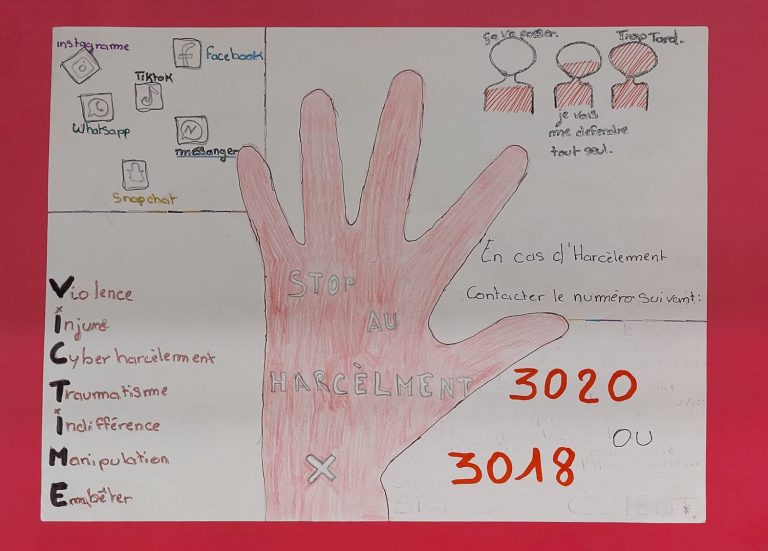 instagramme
facebook
Tiktok
Whatsapp
méssanger
Snapchat
ça va passer.
Trop Tard.
je vais
me défendre
tout seul.
En cas d'Harcèlement
Contacter le numéro suivant:
3020
OU
3018
STOP
AU
HARCÈLMENT
Violence
injure
Cyber harcèlement
Traumatisme
indifférence
Manipulation
Embêter